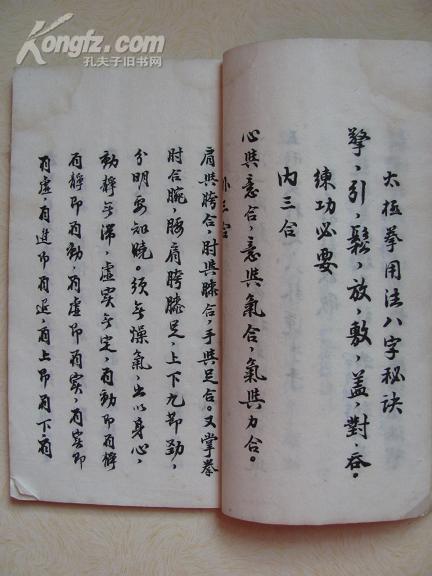 Kongfz.com
孔夫子旧书网
太极拳用法八字秘诀
擎,引,鬆,放,敷,盖,對,吞。
練功必要
内三合
心與意合,意與氣合,氣與力合。
外三合
肩與胯合,肘與膝合,手與足合。又掌拳
肘合腕,腰肩胯膝足,上下九节劲,
分明要知晓。须無燥氣,出以身心,
動靜無滞,虚实無定,有動即有靜
有靜即有動,有虚即有实,有实即
有虚,有進即有退,有上即有下,有